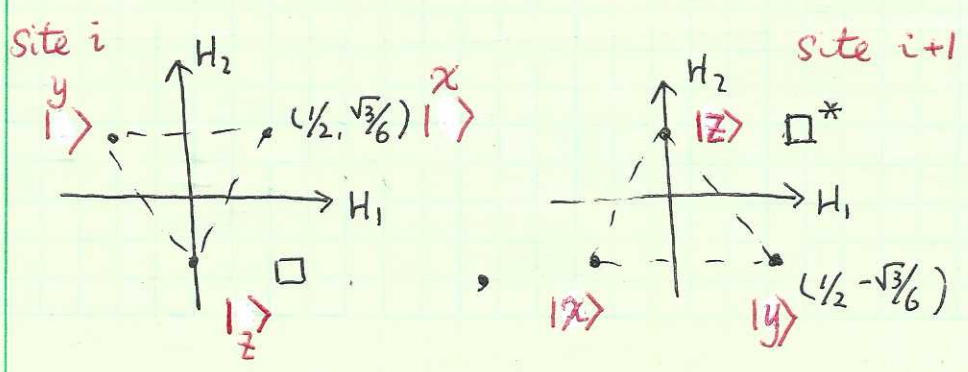 site i
H₂
y
| ⟩
(1/2, √3/6)
x
| ⟩
H₁
□
|z⟩
,
site i+1
H₂
|z⟩
□*
H₁
|x⟩
|y⟩
(1/2 -√3/6)